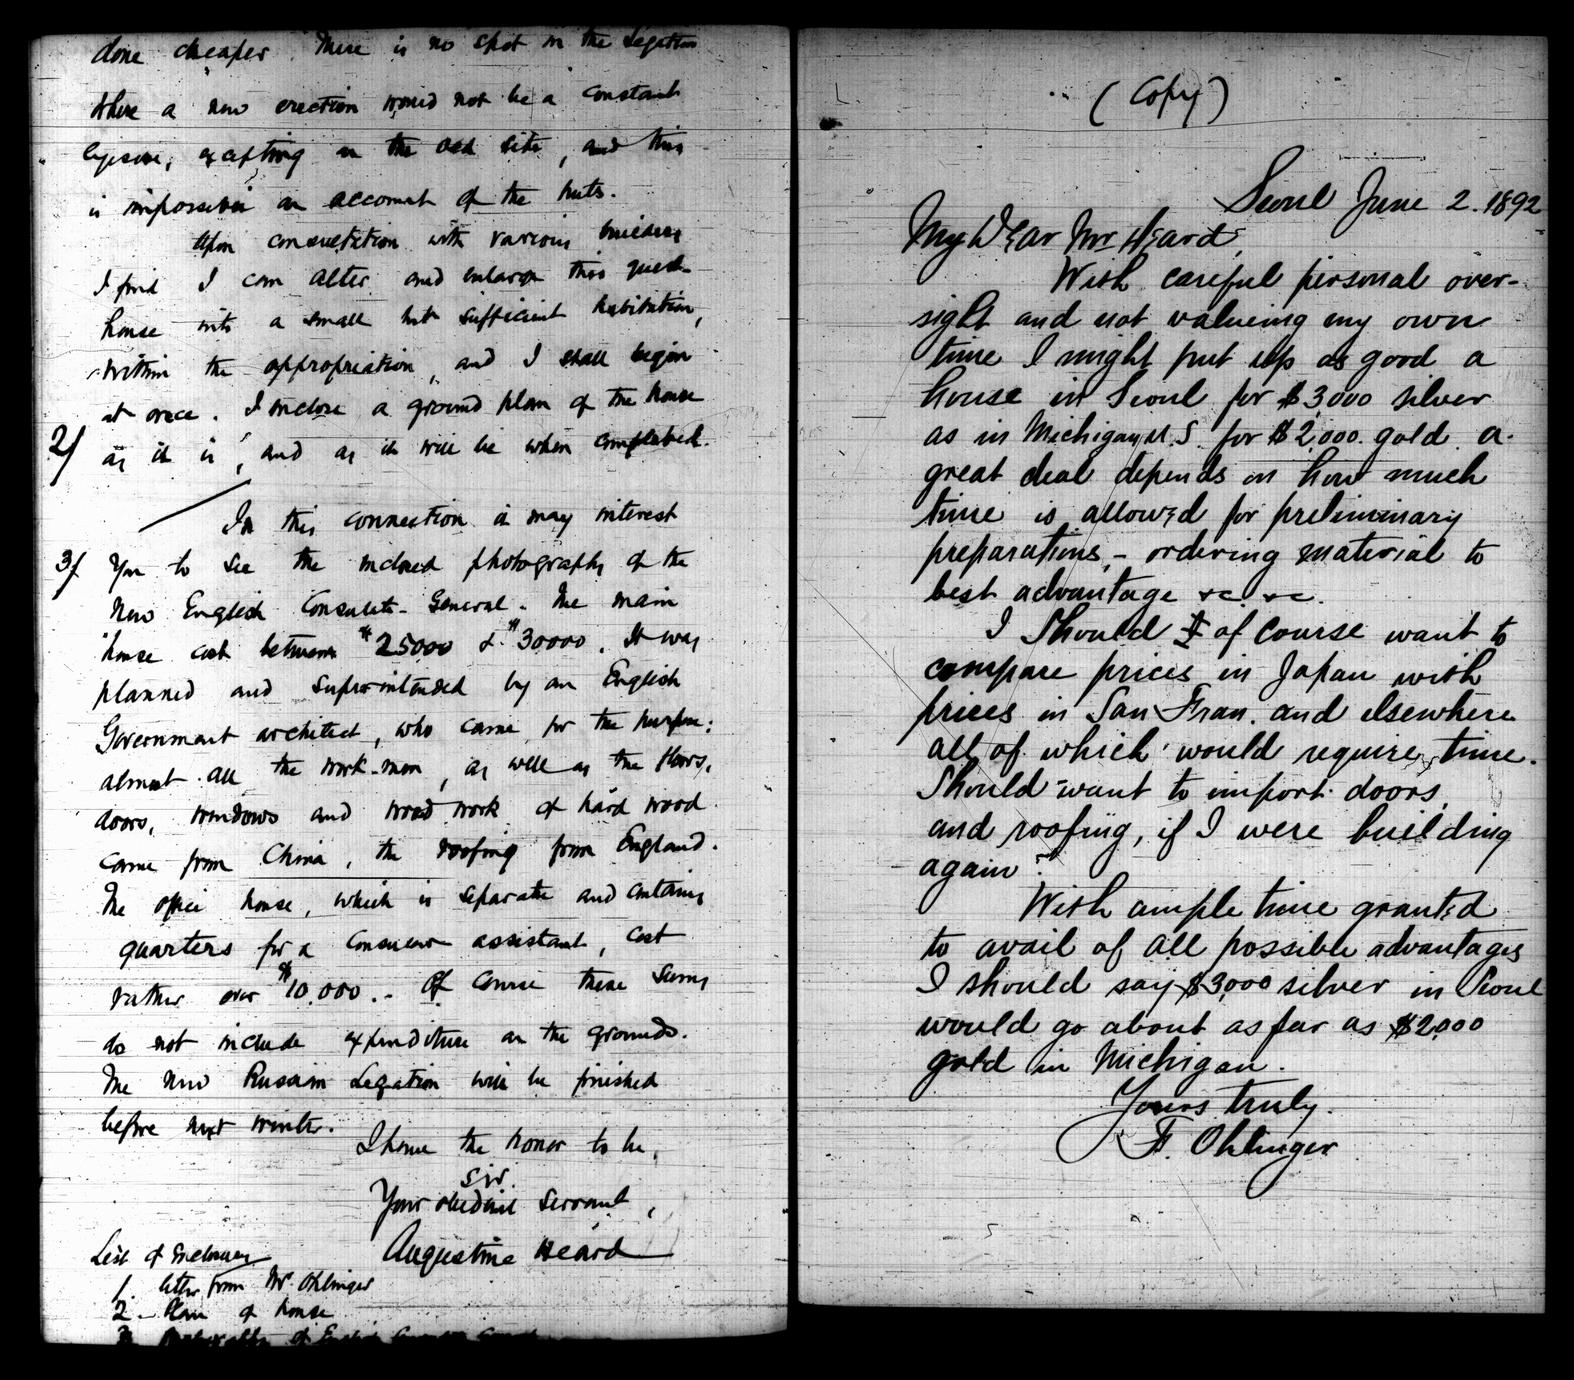 done cheaper. There is no spot in the Legation
where a new erection would not be a constant
eyesore, excepting on the old site, and this
is impossible on account of the huts.
Upon consultation with various builders
I find I can alter and enlarge this guest-
house into a small but sufficient habitation,
within the appropriation, and I shall begin
at once. I inclose a ground plan of the house
2/ as it is, and as it will be when completed.
In this connection it may interest
3/ you to see the inclosed photographs of the
new English Consulate-General. The main
house cost between $25000 & $30000. It was
planned and superintended by an English
Government architect, who came for the purpose:
almost all the work-men, as well as the floors,
doors, windows and wood work of hard wood
came from China, the roofing from England.
The office house, which is separate and contains
quarters for a Consular assistant, cost
rather over $10.000.- Of course these sums
do not include expenditure on the grounds.
The new Russian Legation will be finished
before next winter.
I have the honor to be,
Sir,
Your obedient servant,
Augustine Heard
List of Enclosures
1. letter from Mr. Ohlinger
2. Plan of house
3. of English
(Copy)
Seoul June 2. 1892
My Dear Mr Heard,
With careful personal over-
sight and not valueing my own
time I might put up as good a
house in Seoul for $3,000 silver
as in Michigan, U.S. for $2,000. gold. a
great deal depends on how much
time is allowed for preliminary
preparations, - ordering material to
best advantage &c. &c.
I should of course want to
compare prices in Japan with
prices in San Fran. and elsewhere
all of which would require time.
Should want to import doors,
and roofing, if I were building
again.
With ample time granted
to avail of all possible advantages
I should say $3,000 silver in Seoul
would go about as far as $2,000
gold in Michigan.
Yours truly.
F. Ohlinger